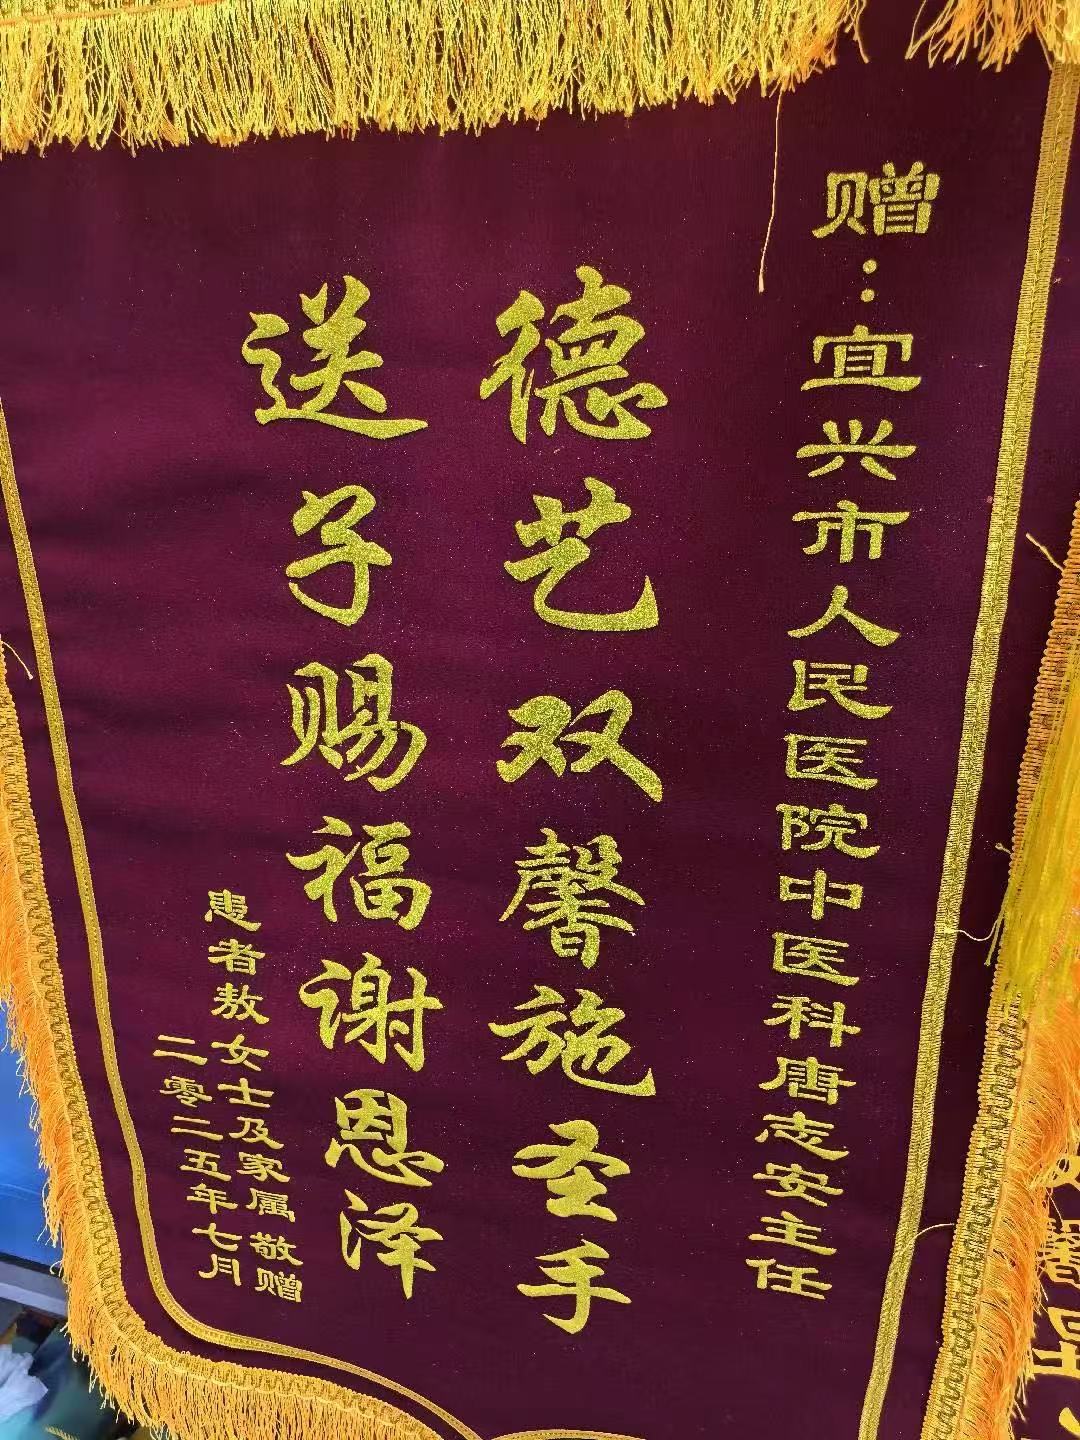 赠：宜兴市人民医院中医科唐志安主任
德艺双馨施圣手
送子赐福谢恩泽
患者敖女士及家属敬赠
二零二五年七月